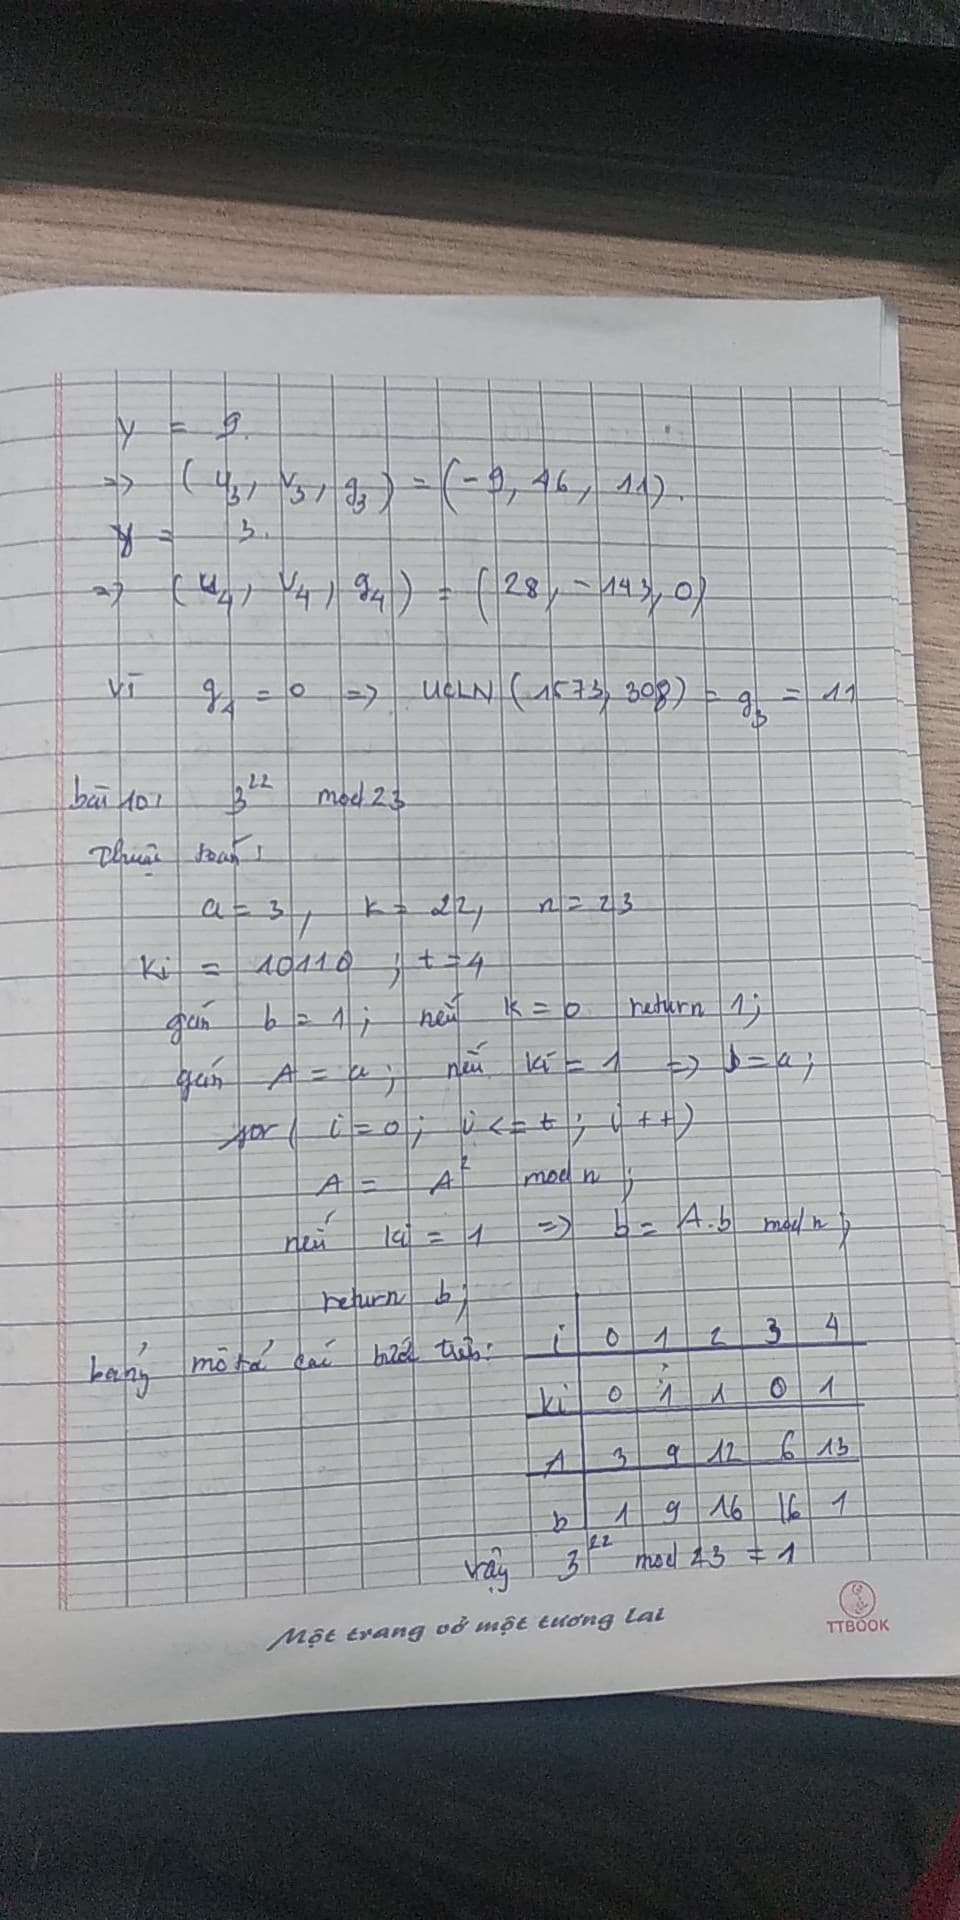 y = 9.
=> (u₃, v₃, g₃) = (-9, 46, 11).
y = 3.
=> (u₄, v₄, g₄) = (28, -143, 0)
vì g₄ = 0 => UCLN (1573, 308) = g₃ = 11
bài 10: 3²² mod 23
Thuật toán:
a = 3, k = 22, n = 23
ki = 10110 ; t = 4
gán b = 1; nếu k = 0 return 1;
gán A = a; nếu ki = 1 => b = a;
for ( i = 0; i <= t; i ++)
A = A² mod n;
nếu ki = 1 => b = A.b mod n;
return b;
bảng mô tả các bước trên:
i 0 1 2 3 4
ki 0 1 1 0 1
A 3 9 12 6 13
b 1 9 16 16 1
vậy 3²² mod 23 = 1
Một trang vở một tương lai
TTBOOK